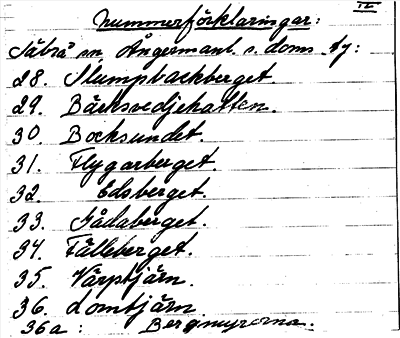 IV
Nummerförklaringar:
Säbrå sn, Ångermanl. s. doms. fg:
28. Stumpbackberget.
29. Bäcksvedjehatten.
30. Bocksundet.
31. Flygarberget.
32. Edsberget.
33. Gådaberget.
34. Fälleberget.
35. Värptjärn.
36. Lomtjärn.
36a: Bergmyrorna.